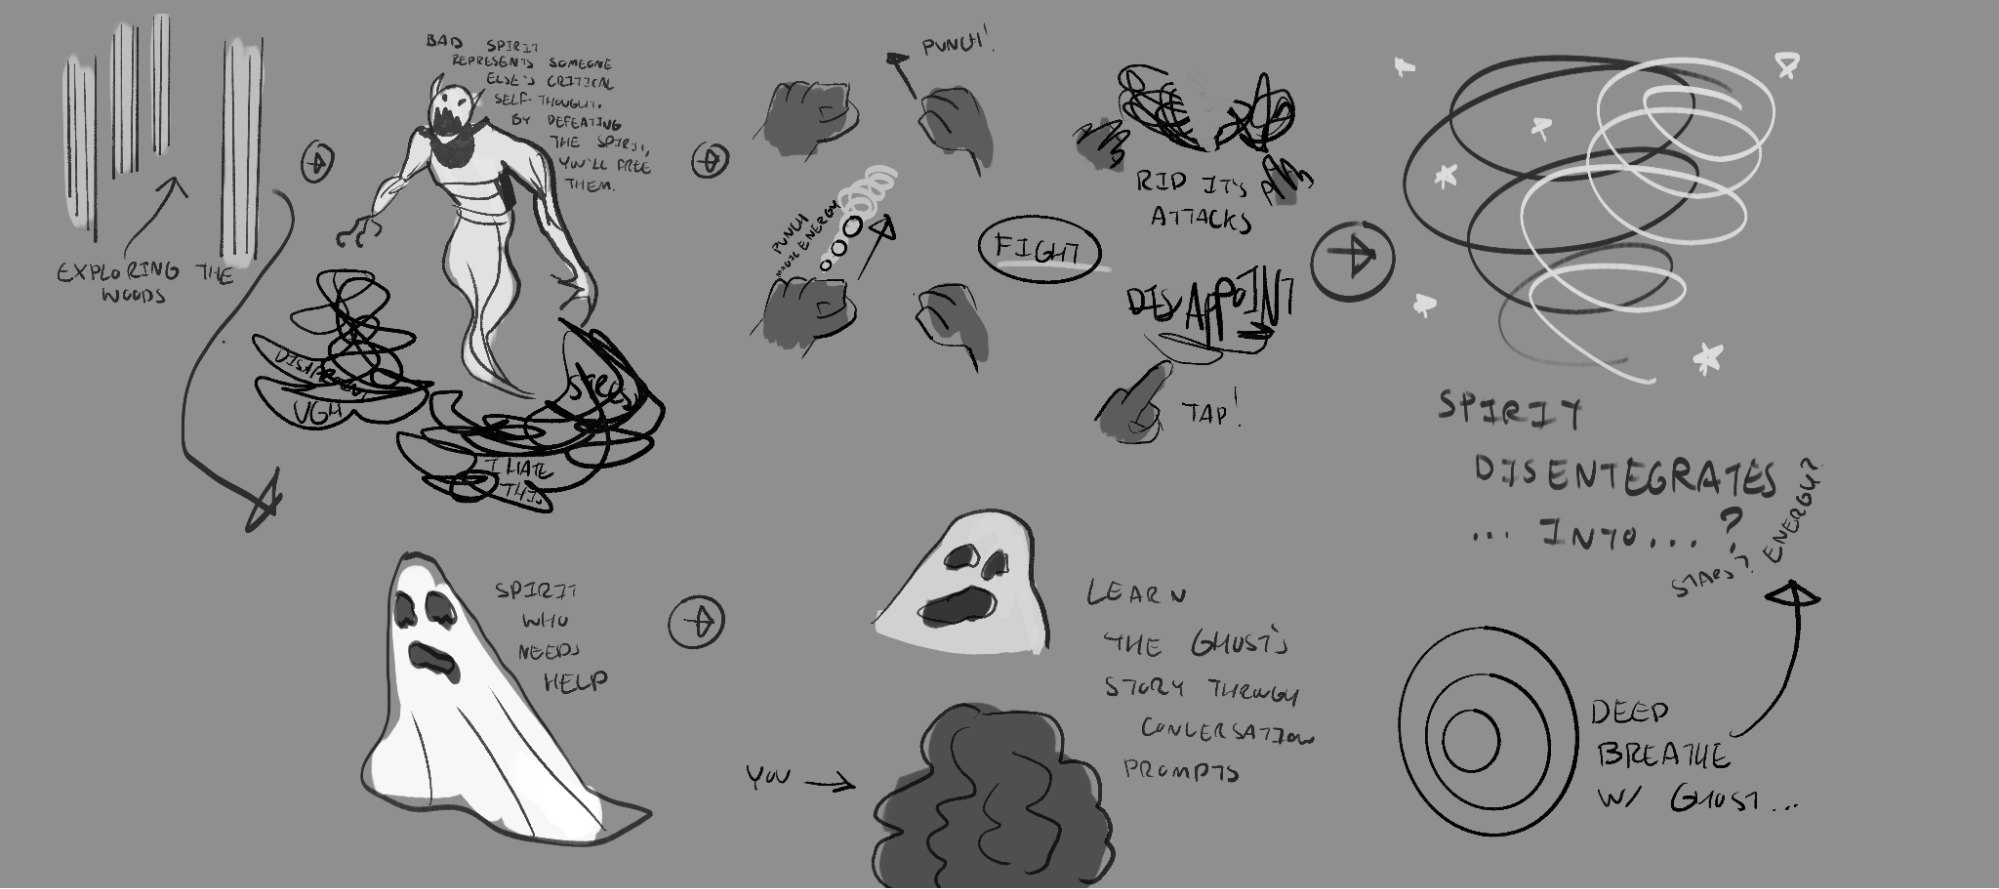 EXPLORING THE
WOODS
BAD SPIRIT
REPRESENTS SOMEONE
ELSE'S CRITICAL
SELF-THOUGHT.
BY DEFEATING
THE SPIRIT,
YOU'LL FREE
THEM.
DISAPPOINT
UGH
STRESS
I HATE
THIS
PUNCH!
PUNCH
MAGIC ENERGY
FIGHT
RID IT'S
ATTACKS
DISAPPOINT
TAP!
SPIRIT
DISENTEGRATES
... INTO...?
STARS? ENERGY?
SPIRIT
WHO
NEEDS
HELP
LEARN
THE GHOST'S
STORY THROUGH
CONVERSATION
PROMPTS
YOU
DEEP
BREATHE
W/ GHOST...